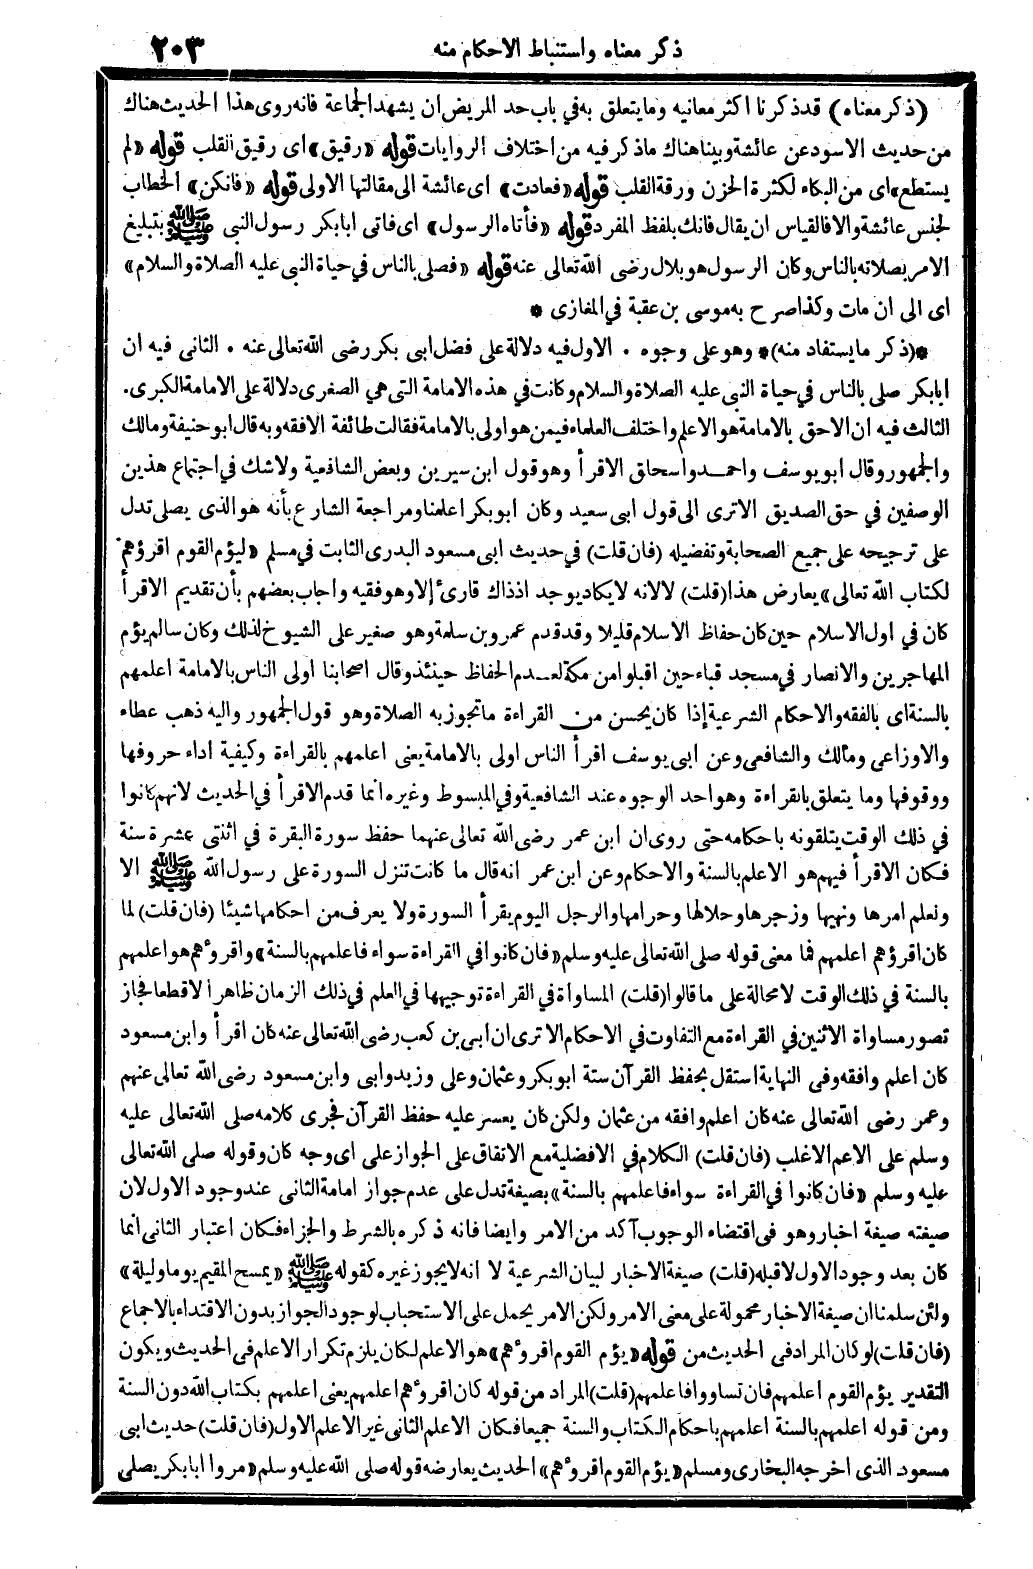 ذكر معناه واستنباط الاحكام منه ٢٠٣
(ذكر معناه) قد ذكرنا اكثر معانيه وما يتعلق به في باب حد المريض ان يشهد الجماعة فانه روى هذا الحديث هناك
من حديث الاسود عن عائشة وبينا هناك ما ذكر فيه من اختلاف الروايات قوله «رقيق» اى رقيق القلب قوله «لم
يستطع» اى من البكاء لكثرة الحزن ورقة القلب قوله «فعادت» اى عائشة الى مقالتها الاولى قوله «فانكن» الخطاب
لجنس عائشة والا فالقياس ان يقال فانك بلفظ المفرد قوله «فأتاه الرسول» اى فاتى ابا بكر رسول النبى ﷺ بتبليغ
الامر بصلاته بالناس وكان الرسول هو بلال رضى الله تعالى عنه قوله «فصلى بالناس في حياة النبى عليه الصلاة والسلام»
اى الى ان مات وكذا صرح به موسى بن عقبة في المغازى *
*(ذكر ما يستفاد منه)* وهو على وجوه . الاول فيه دلالة على فضل ابى بكر رضى الله تعالى عنه . الثانى فيه ان
ابا بكر صلى بالناس في حياة النبى عليه الصلاة والسلام وكانت في هذه الامامة التى هي الصغرى دلالة على الامامة الكبرى.
الثالث فيه ان الاحق بالامامة هو الاعلم واختلف العلماء فيمن هو اولى بالامامة فقالت طائفة الافقه وبه قال ابو حنيفة ومالك
والجمهور وقال ابو يوسف واحمد واسحاق الاقرأ وهو قول ابن سيرين وبعض الشافعية ولا شك في اجتماع هذين
الوصفين في حق الصديق الا ترى الى قول ابى سعيد وكان ابو بكر اعلمنا ومراجعة الشارع بأنه هو الذى يصلى تدل
على ترجيحه على جميع الصحابة وتفضيله (فان قلت) في حديث ابى مسعود البدرى الثابت في مسلم «ليؤم القوم اقرؤهم
لكتاب الله تعالى» يعارض هذا (قلت) لا لانه لا يكاد يوجد اذ ذاك قارئ إلا وهو فقيه واجاب بعضهم بأن تقديم الاقرأ
كان في اول الاسلام حين كان حفاظ الاسلام قليلا وقد قدم عمرو بن سلمة وهو صغير على الشيوخ لذلك وكان سالم يؤم
المهاجرين والانصار في مسجد قباء حين اقبلوا من مكة لعدم الحفاظ حينئذ وقال اصحابنا اولى الناس بالامامة اعلمهم
بالسنة اى بالفقه والاحكام الشرعية إذا كان يحسن من القراءة ما تجوز به الصلاة وهو قول الجمهور واليه ذهب عطاء
والاوزاعى ومالك والشافعى وعن ابى يوسف اقرأ الناس اولى بالامامة يعنى اعلمهم بالقراءة وكيفية اداء حروفها
ووقوفها وما يتعلق بالقراءة وهو احد الوجوه عند الشافعية وفي المبسوط وغيره انما قدم الاقرأ في الحديث لانهم كانوا
في ذلك الوقت يتلقونه باحكامه حتى روى ان ابن عمر رضى الله تعالى عنهما حفظ سورة البقرة في اثنتى عشرة سنة
فكان الاقرأ فيهم هو الاعلم بالسنة والاحكام وعن ابن عمر انه قال ما كانت تنزل السورة على رسول الله ﷺ الا
ونعلم امرها ونهيها وزجرها وحلالها وحرامها والرجل اليوم يقرأ السورة ولا يعرف من احكامها شيئا (فان قلت) لما
كان اقرؤهم اعلمهم فما معنى قوله صلى الله تعالى عليه وسلم «فان كانوا في القراءة سواء فاعلمهم بالسنة» واقرؤهم هو اعلمهم
بالسنة في ذلك الوقت لا محالة على ما قالوا (قلت) المساواة في القراءة توجيهها في العلم في ذلك الزمان ظاهرا لا قطعا فجاز
تصور مساواة الاثنين في القراءة مع التفاوت في الاحكام الا ترى ان ابى بن كعب رضى الله تعالى عنه كان اقرأ وابن مسعود
كان اعلم وافقه وفى النهاية استقل بحفظ القرآن ستة ابو بكر وعثمان وعلى وزيد وابى وابن مسعود رضى الله تعالى عنهم
وعمر رضى الله تعالى عنه كان اعلم وافقه من عثمان ولكن كان يعسر عليه حفظ القرآن فجرى كلامه صلى الله تعالى عليه
وسلم على الاعم الاغلب (فان قلت) الكلام في الافضلية مع الاتفاق على الجواز على اى وجه كان وقوله صلى الله تعالى
عليه وسلم «فان كانوا في القراءة سواء فاعلمهم بالسنة» بصيغة تدل على عدم جواز امامة الثانى عند وجود الاول لان
صيغته صيغة اخبار وهو فى اقتضاء الوجوب آكد من الامر وايضا فانه ذكره بالشرط والجزاء فكان اعتبار الثانى انما
كان بعد وجود الاول لا قبله (قلت) صيغة الاخبار لبيان الشرعية لا انه لا يجوز غيره كقوله ﷺ «يمسح المقيم يوما وليلة»
ولئن سلمنا ان صيغة الاخبار محمولة على معنى الامر ولكن الامر يحمل على الاستحباب لوجود الجواز بدون الاقتداء بالاجماع
(فان قلت) لو كان المراد فى الحديث من قوله «يؤم القوم اقرؤهم» هو الاعلم لكان يلزم تكرار الاعلم فى الحديث ويكون
التقدير يؤم القوم اعلمهم فان تساووا فاعلمهم (قلت) المراد من قوله كان اقرؤهم اعلمهم يعنى اعلمهم بكتاب الله دون السنة
ومن قوله اعلمهم بالسنة اعلمهم باحكام الكتاب والسنة جميعا فكان الاعلم الثانى غير الاعلم الاول (فان قلت) حديث ابى
مسعود الذى اخرجه البخارى ومسلم «يؤم القوم اقرؤهم» الحديث يعارضه قوله صلى الله عليه وسلم «مروا ابا بكر يصلى